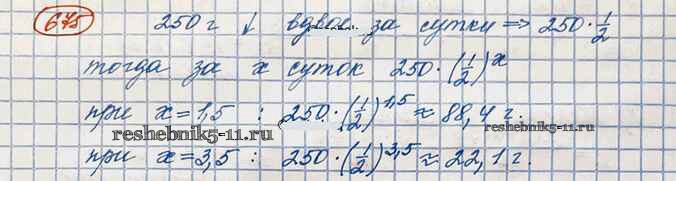 675 250 г ↓ вдвое за сутки ⇒ 250 · 1/2
тогда за x суток 250 · (1/2)^x
при x = 1,5 : 250 · (1/2)^1,5 ≈ 88,4 г.
reshebnik5-11.ru reshebnik5-11.ru
при x = 3,5 : 250 · (1/2)^3,5 ≈ 22,1 г.